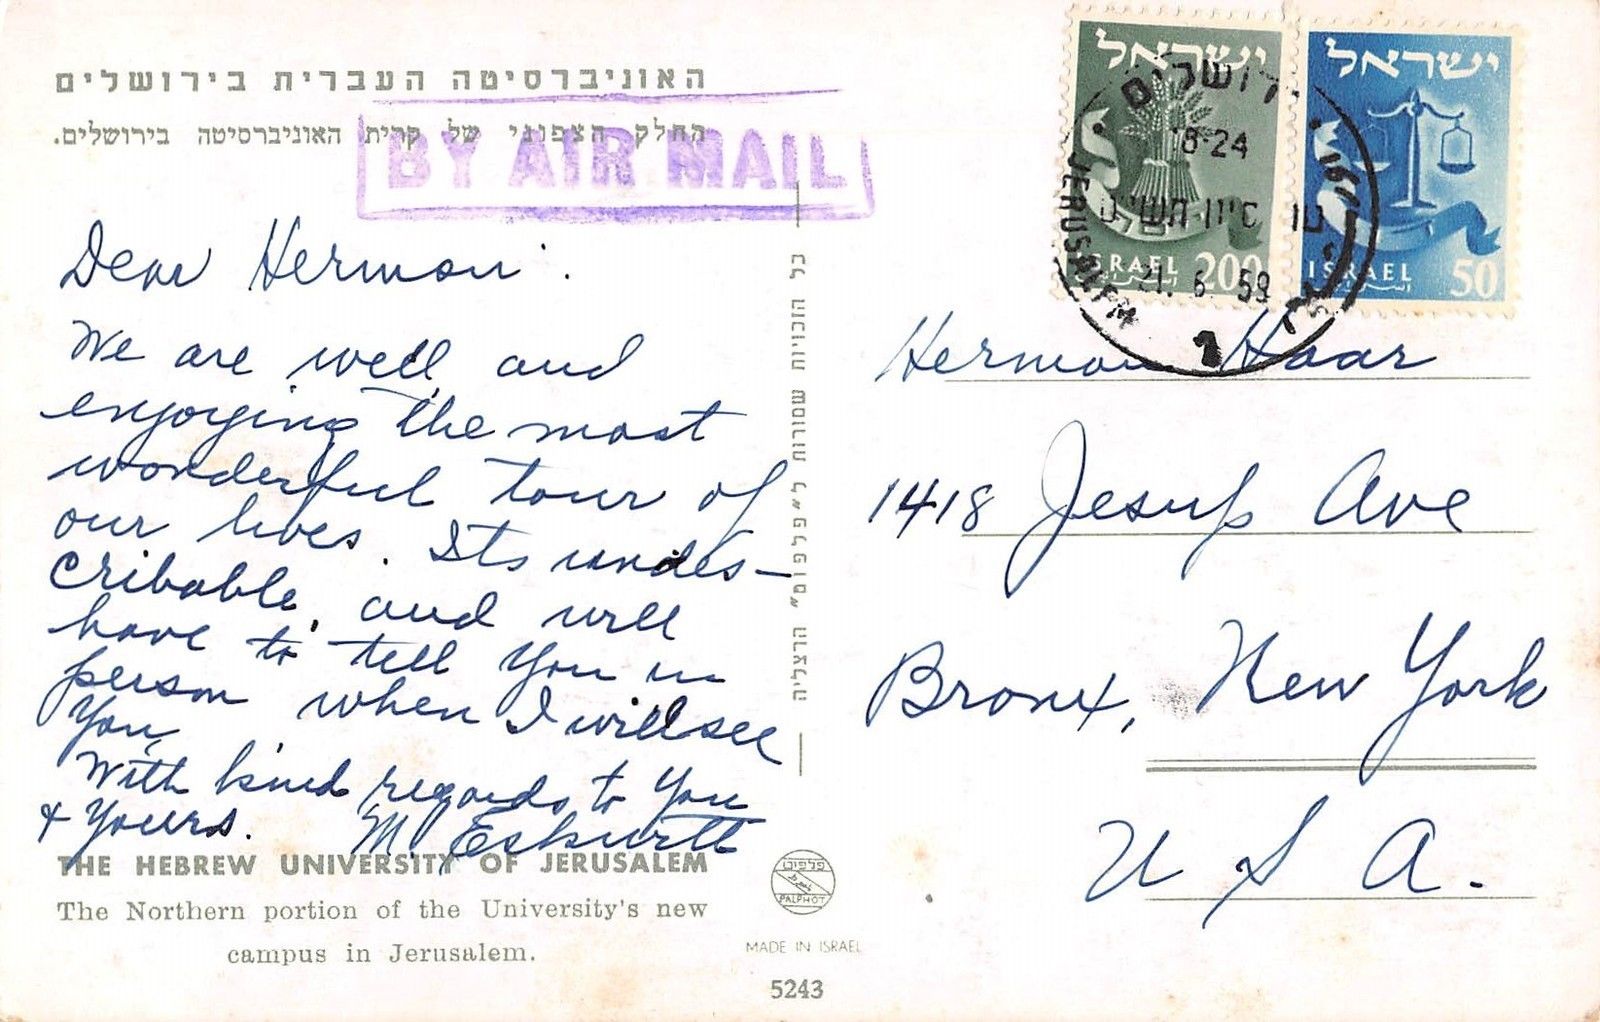 האוניברסיטה העברית בירושלים
החלק הצפוני של קרית האוניברסיטה בירושלים.
BY AIR MAIL
Dear Herman.
We are well and
enjoying the most
wonderful tour of
our lives. Its undes-
cribable, and will
have to tell you in
person when I will see
you,
With kind regards to you
& yours. M.
THE HEBREW UNIVERSITY OF JERUSALEM
The Northern portion of the University's new
campus in Jerusalem.
כל הזכויות שמורות ל"פלפוט" הרצליה
פלפוט
PALPHOT
MADE IN ISRAEL
5243
ישראל
ISRAEL 200
ישראל
ISRAEL 50
ירושלים
18-24
JERUSALEM
21. 6. 59
Herman Haar
1418 Jesup Ave
Bronx, New York
U S A.